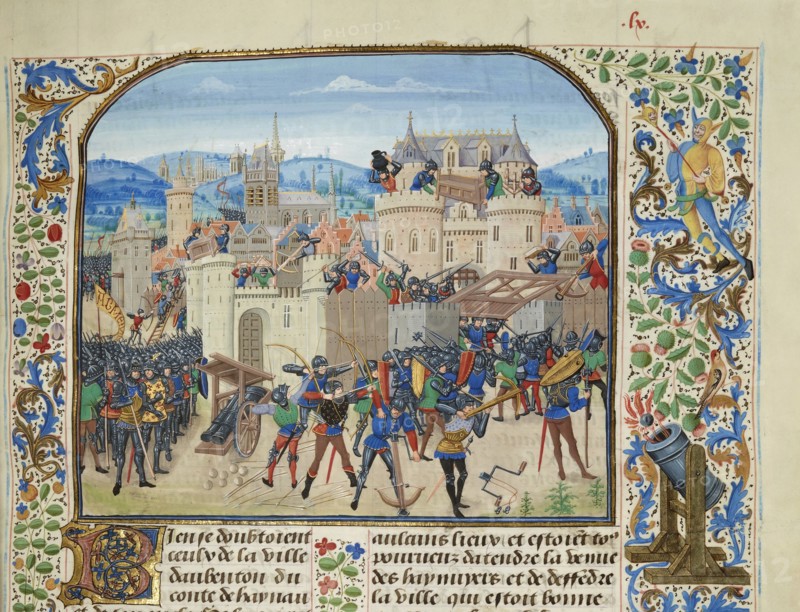 .lx.
PHOTO12
Bien se doubtoient
ceulx de la ville
daubenton du
conte de haynau
aulains lieux et estoiēt
pourueuz datendre la venue
des haynuyers et de deffēdre
la ville qui estoit bonne